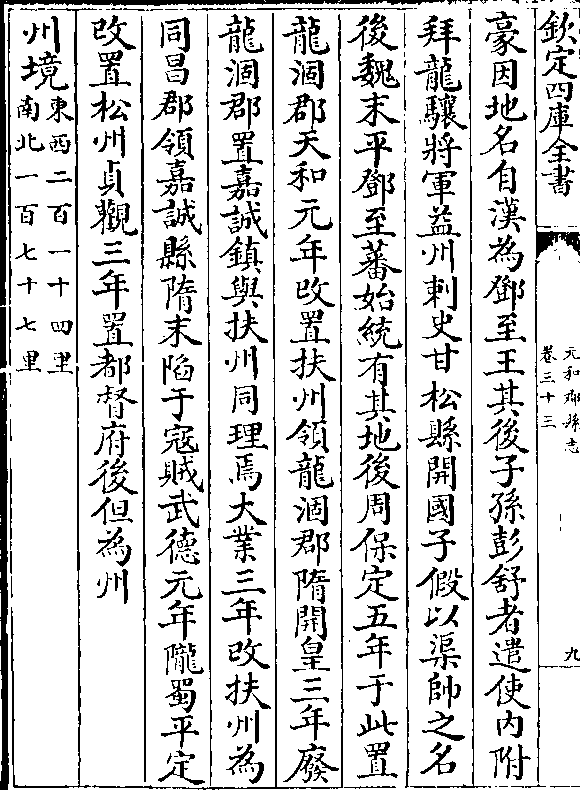 欽定四庫全書
元和郡縣志
卷三十三
九
豪因地名自漢為鄧至王其後子孫彭舒者遣使內附
拜龍驤將軍益州刺史甘松縣開國子假以渠帥之名
後魏末平鄧至蕃始統有其地後周保定五年于此置
龍涸郡天和元年改置扶州領龍涸郡隋開皇三年廢
龍涸郡置嘉誠鎮與扶州同理焉大業三年改扶州為
同昌郡領嘉誠縣隋末陷于寇賊武德元年隴蜀平定
改置松州貞觀三年置都督府後但為州
州境東西二百一十四里
南北一百七十七里